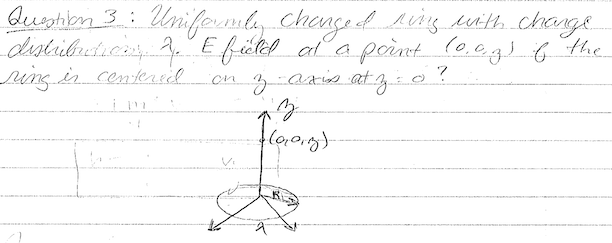 Question 3: Uniformly charged ring with charge
distribution λ. E field at a point (0,0,z) if the
ring is centered on z-axis at z=0?
z
(0,0,z)
R
λ